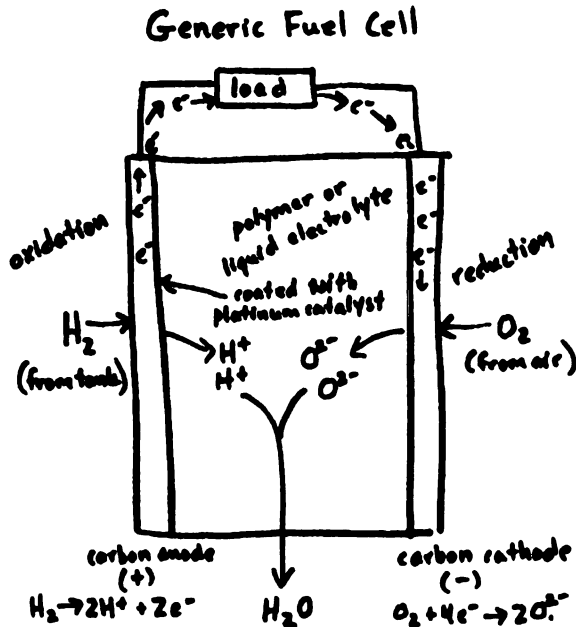 Generic Fuel Cell
load
e⁻
e⁻
e⁻
e⁻
e⁻
e⁻
e⁻
e⁻
e⁻
e⁻
oxidation
polymer or
liquid electrolyte
reduction
coated with
platinum catalyst
H₂
(from tank)
H⁺
H⁺
O²⁻
O²⁻
O₂
(from air)
carbon anode
(+)
H₂→2H⁺ + 2e⁻
H₂O
carbon cathode
(−)
O₂ + 4e⁻→2O²⁻